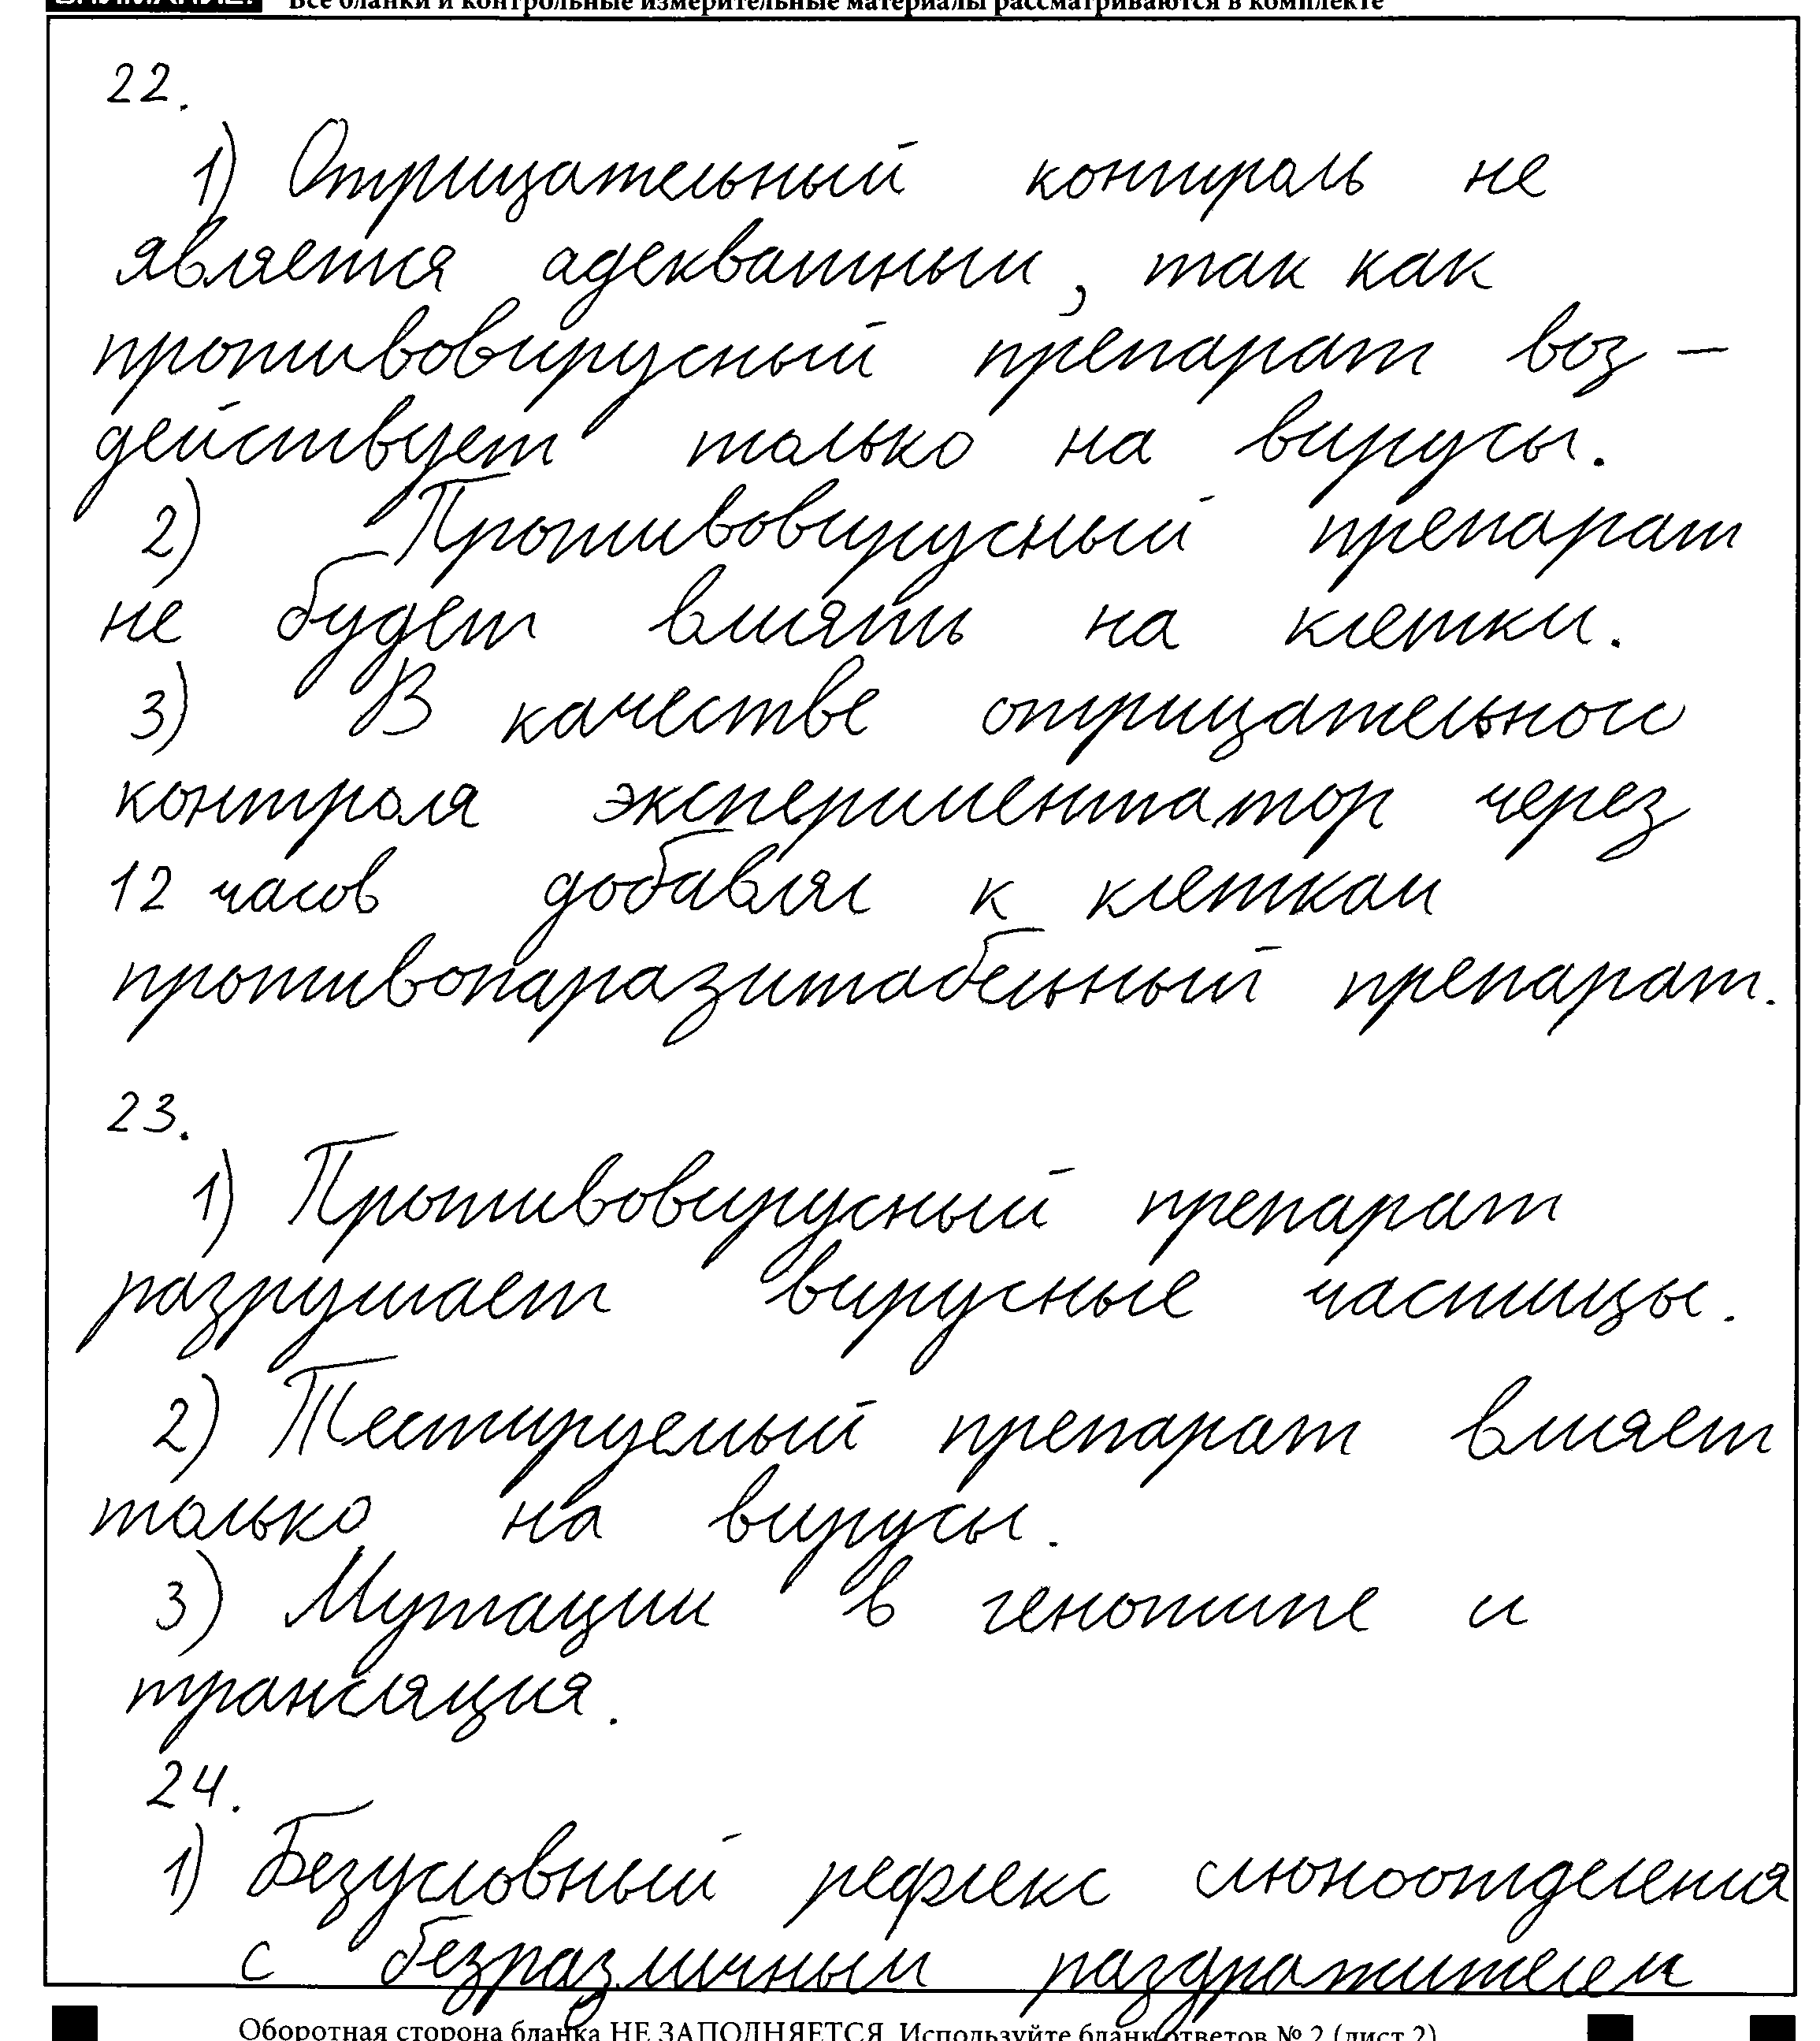 Все бланки и контрольные измерительные материалы рассматриваются в комплекте
22.
1) Отрицательный контроль не
является адекватным, так как
противовирусный препарат воз-
действует только на вирусы.
2) Противовирусный препарат
не будет влиять на клетки.
3) В качестве отрицательного
контроля экспериментатор через
12 часов добавлял к клеткам
противопаразитабельный препарат.
23.
1) Противовирусный препарат
разрушает вирусные частицы.
2) Тестируемый препарат влияет
только на вирусы.
3) Мутации в генотипе и
трансляция.
24.
1) Безусловный рефлекс слюноотделения
с безразличным раздражителем
Оборотная сторона бланка НЕ ЗАПОЛНЯЕТСЯ. Используйте бланк ответов № 2 (лист 2)